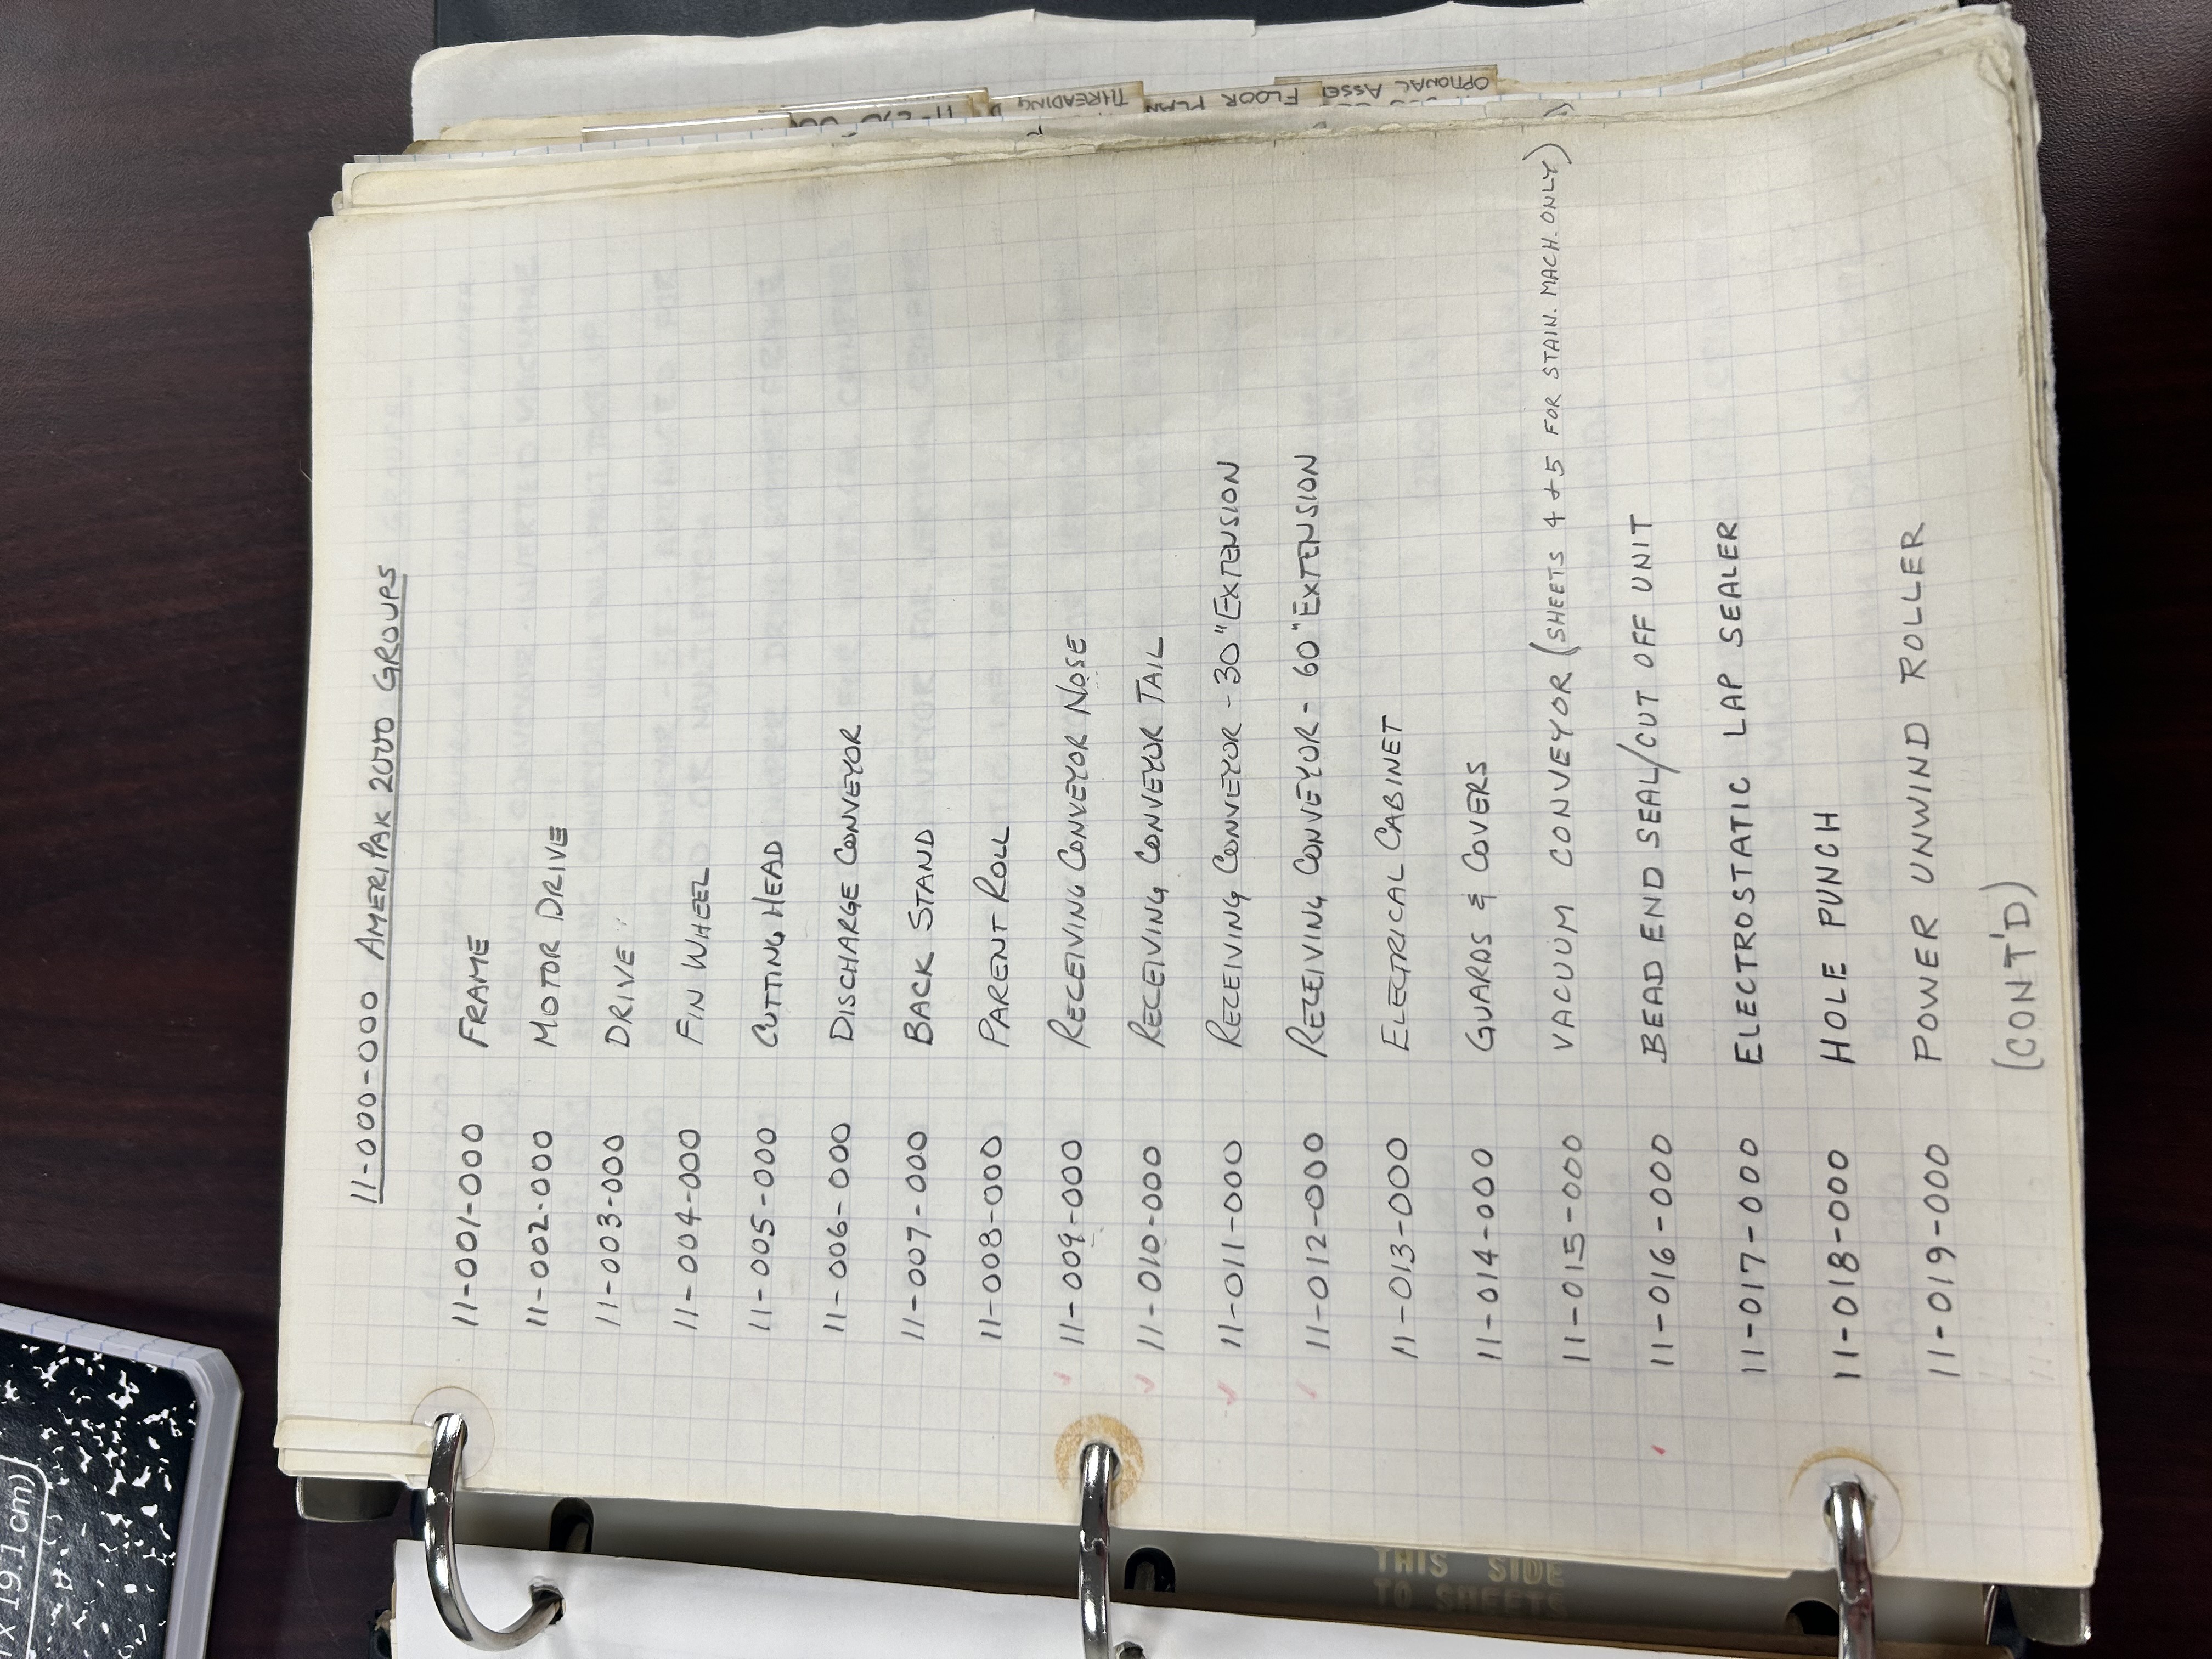 x 19.1 cm)
11-000-000 AMERIPAK 2000 GROUPS
11-001-000 FRAME
11-002-000 MOTOR DRIVE
11-003-000 DRIVE
11-004-000 FIN WHEEL
11-005-000 CUTTING HEAD
11-006-000 DISCHARGE CONVEYOR
11-007-000 BACK STAND
11-008-000 PARENT ROLL
11-009-000 RECEIVING CONVEYOR NOSE
11-010-000 RECEIVING CONVEYOR TAIL
11-011-000 RECEIVING CONVEYOR - 30" EXTENSION
11-012-000 RECEIVING CONVEYOR - 60" EXTENSION
11-013-000 ELECTRICAL CABINET
11-014-000 GUARDS & COVERS
11-015-000 VACUUM CONVEYOR (SHEETS 4 & 5 FOR STAIN. MACH. ONLY)
11-016-000 BEAD END SEAL/CUT OFF UNIT
11-017-000 ELECTROSTATIC LAP SEALER
11-018-000 HOLE PUNCH
11-019-000 POWER UNWIND ROLLER
(CONT'D)
THIS SIDE
TO SHEETS
THREADING
FLOOR PLAN
OPTIONAL ASSE